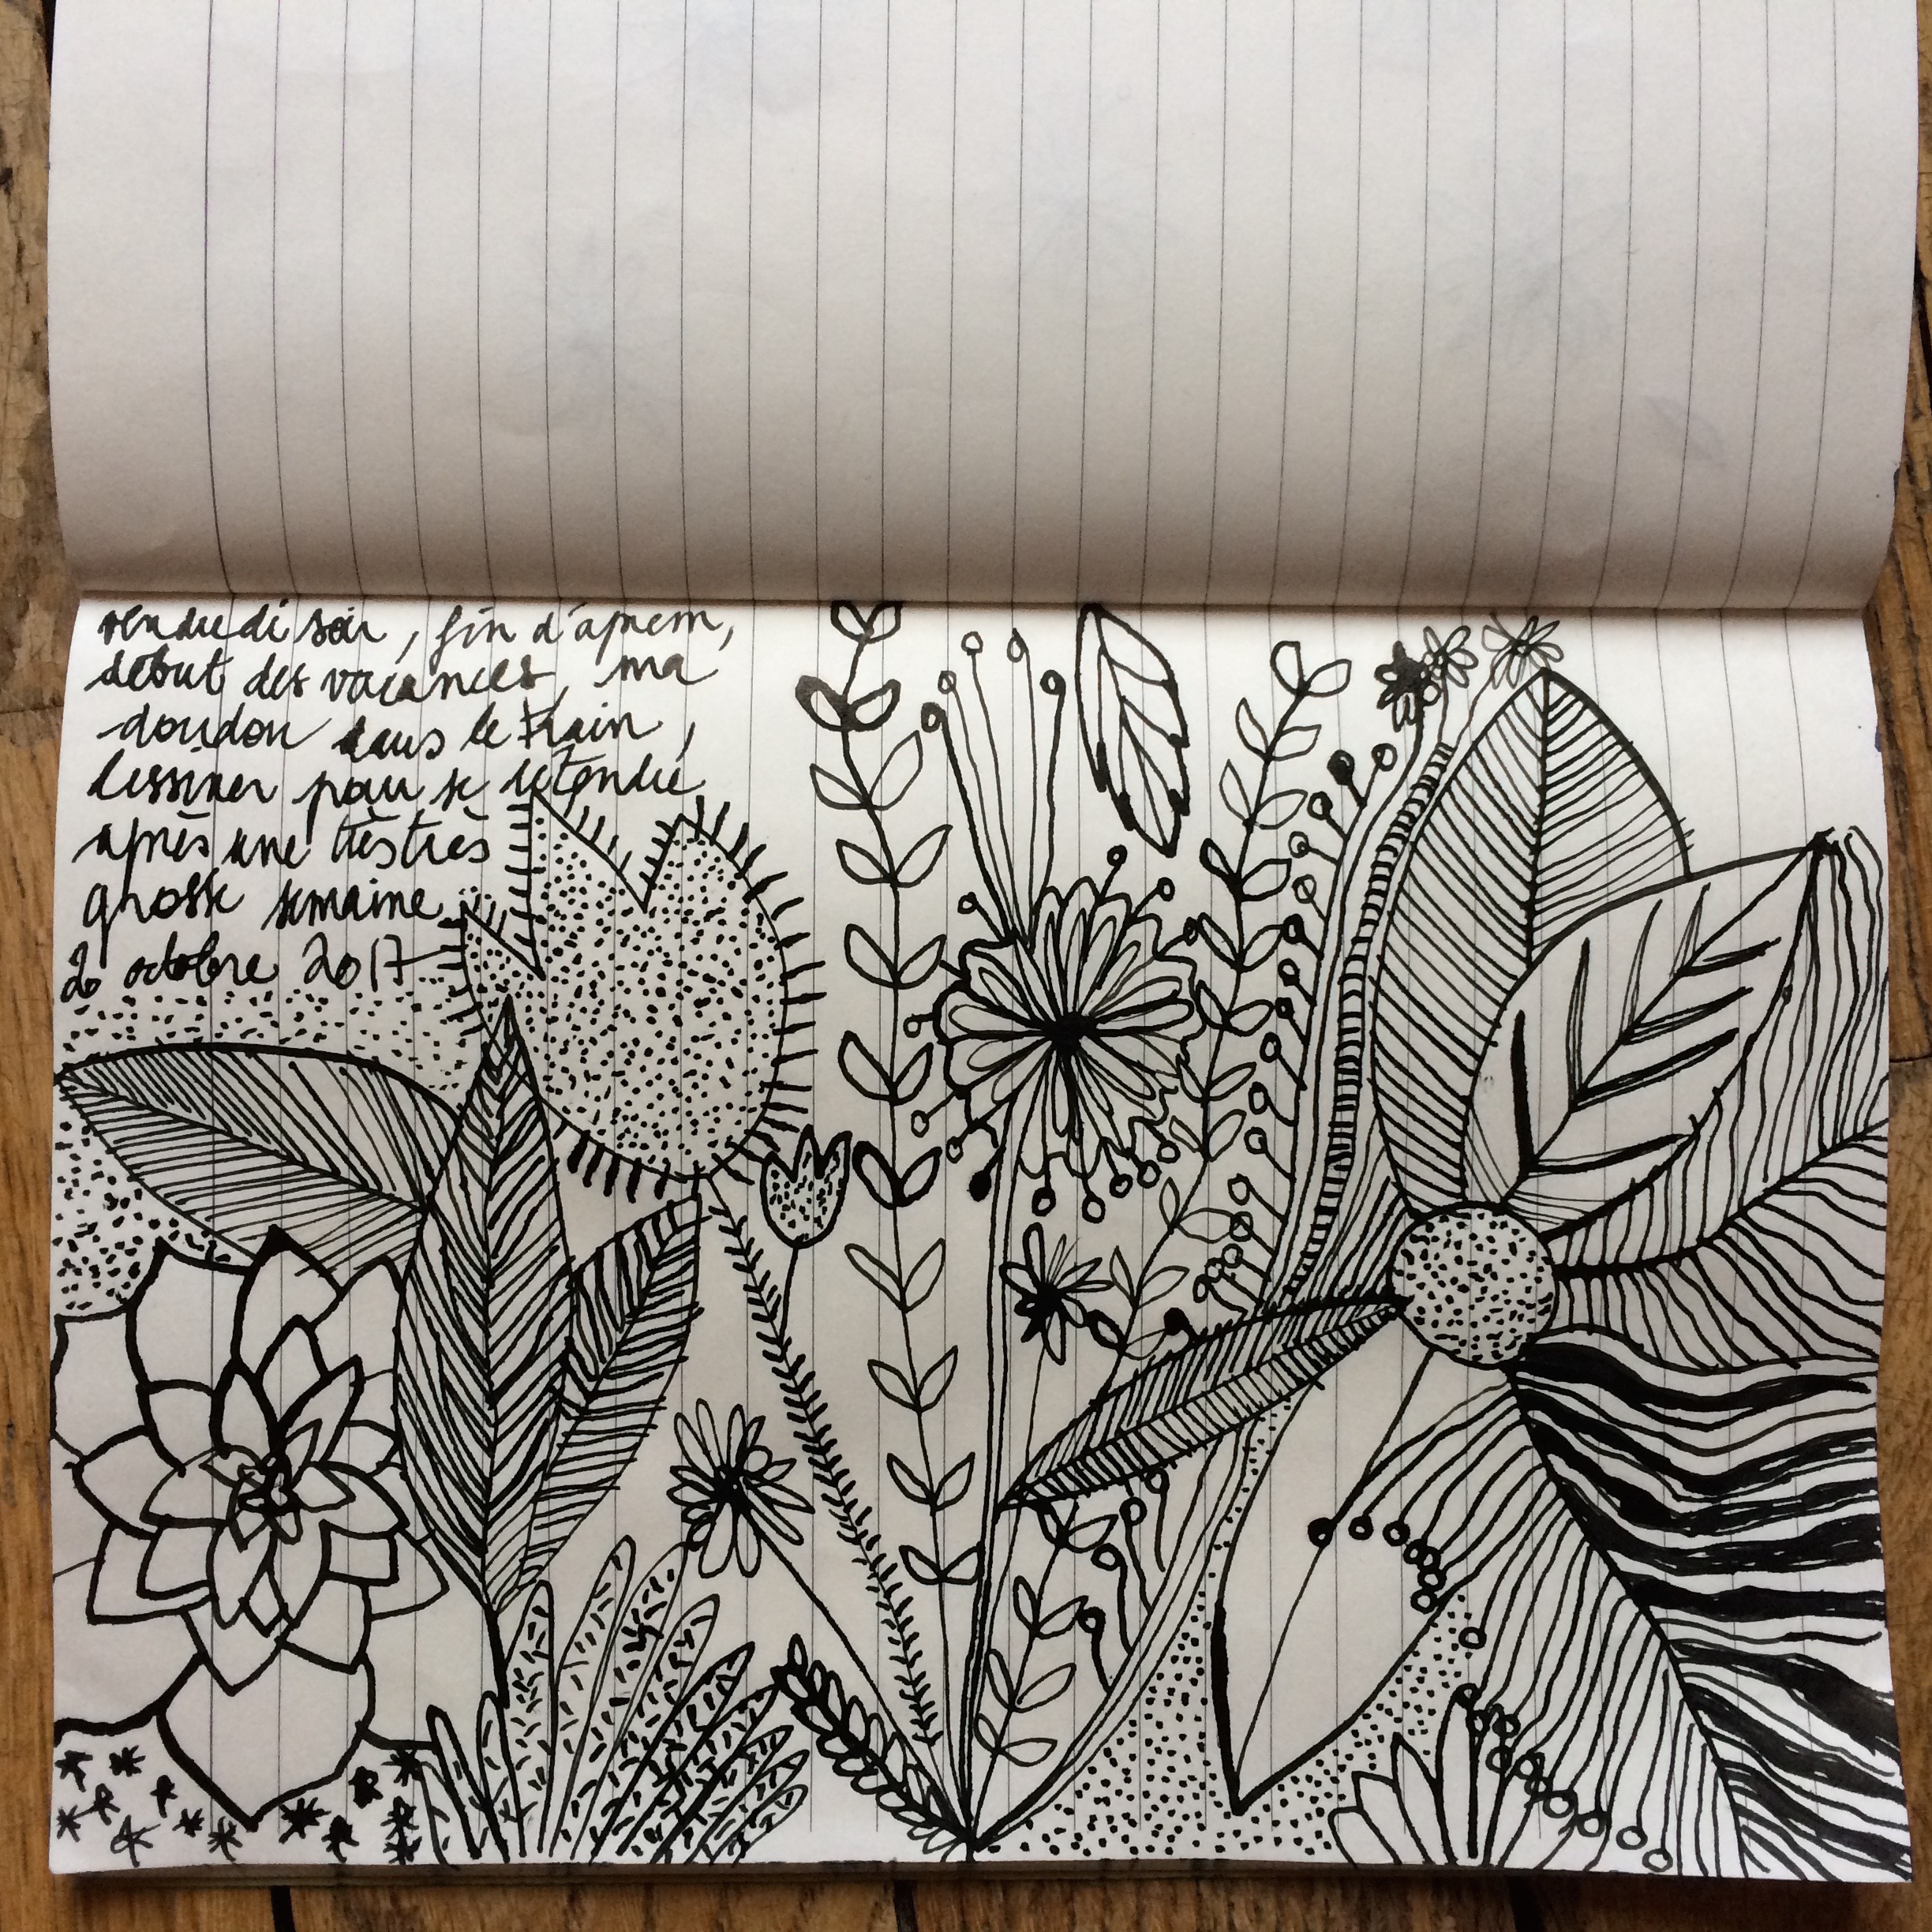 vendredi soir, fin d'aprem,
début des vacances, ma
doudou dans le train,
dessiner pour se détendre
après une très très
grosse semaine
20 octobre 2017